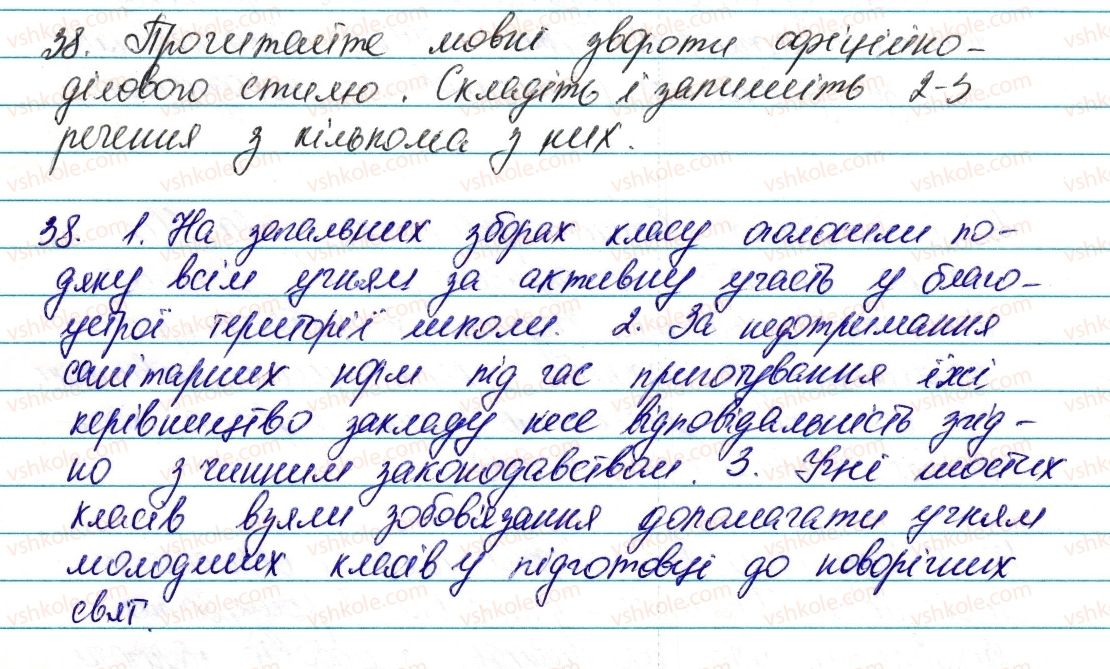 38. Прочитайте мовні звороти офіційно-
ділового стилю. Складіть і запишіть 2-3
речення з кількома з них.
38. 1. На загальних зборах класу оголосили по-
дяку всім учням за активну участь у благо-
устрої території школи. 2. За недотримання
санітарних норм під час приготування їжі
керівництво закладу несе відповідальність згід-
но з чинним законодавством. 3. Учні шостих
класів взяли зобов'язання допомагати учням
молодших класів у підготовці до новорічних
свят.